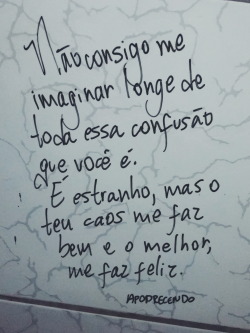 Não consigo me
imaginar longe de
toda essa confusão
que você é.
É estranho, mas o
teu caos me faz
bem e o melhor,
me faz feliz.
APODRECENDO